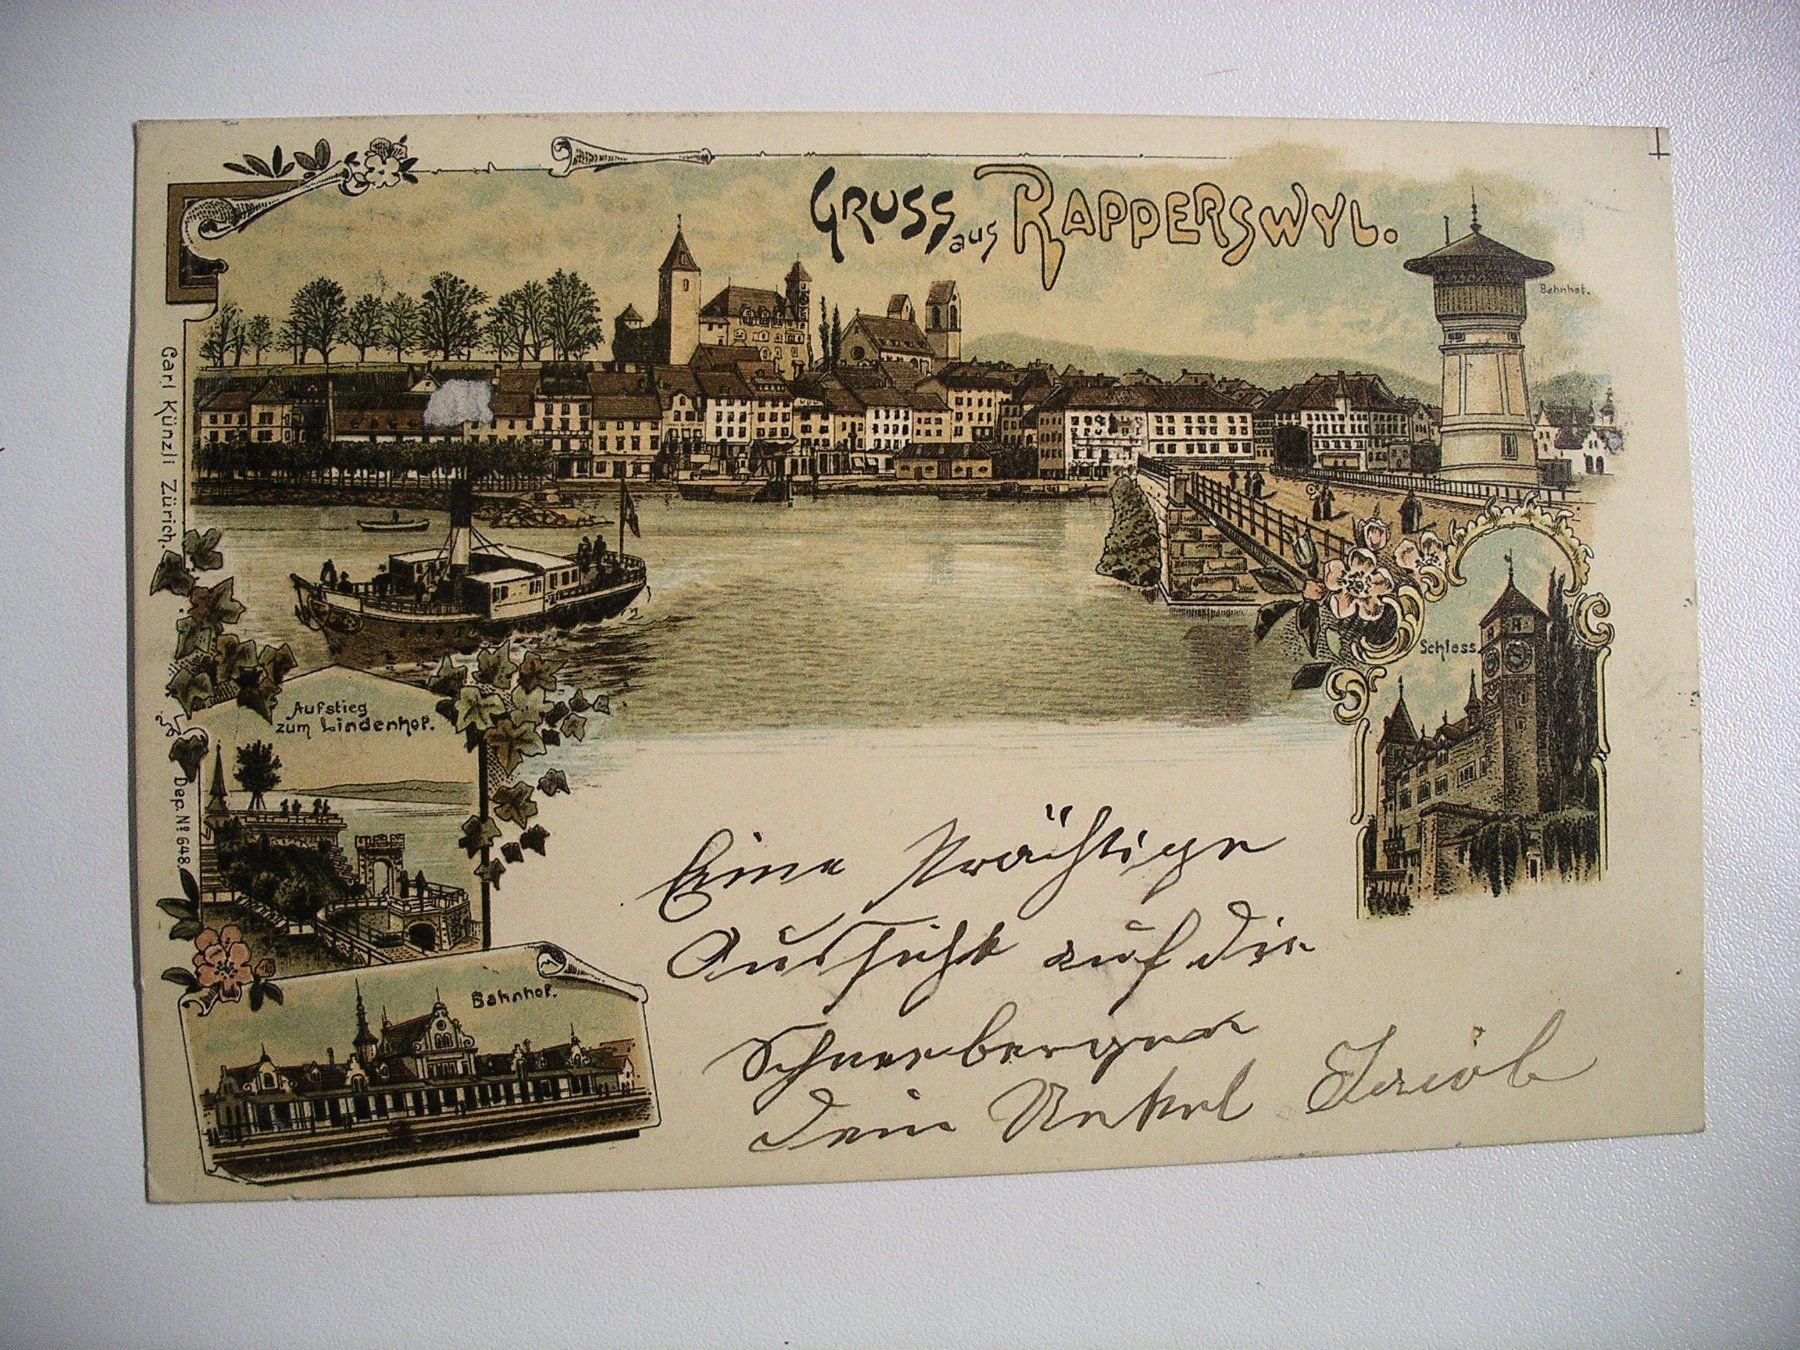 GRUSS aus RAPPERSWYL.
Bahnhof.
Carl Künzli Zürich.
Schloss.
Aufstieg
zum Lindenhof.
Dep. No 648.
Bahnhof.
Eine Prächtige
Aussicht auf die
Schneebergen
Dein Onkel Jacob